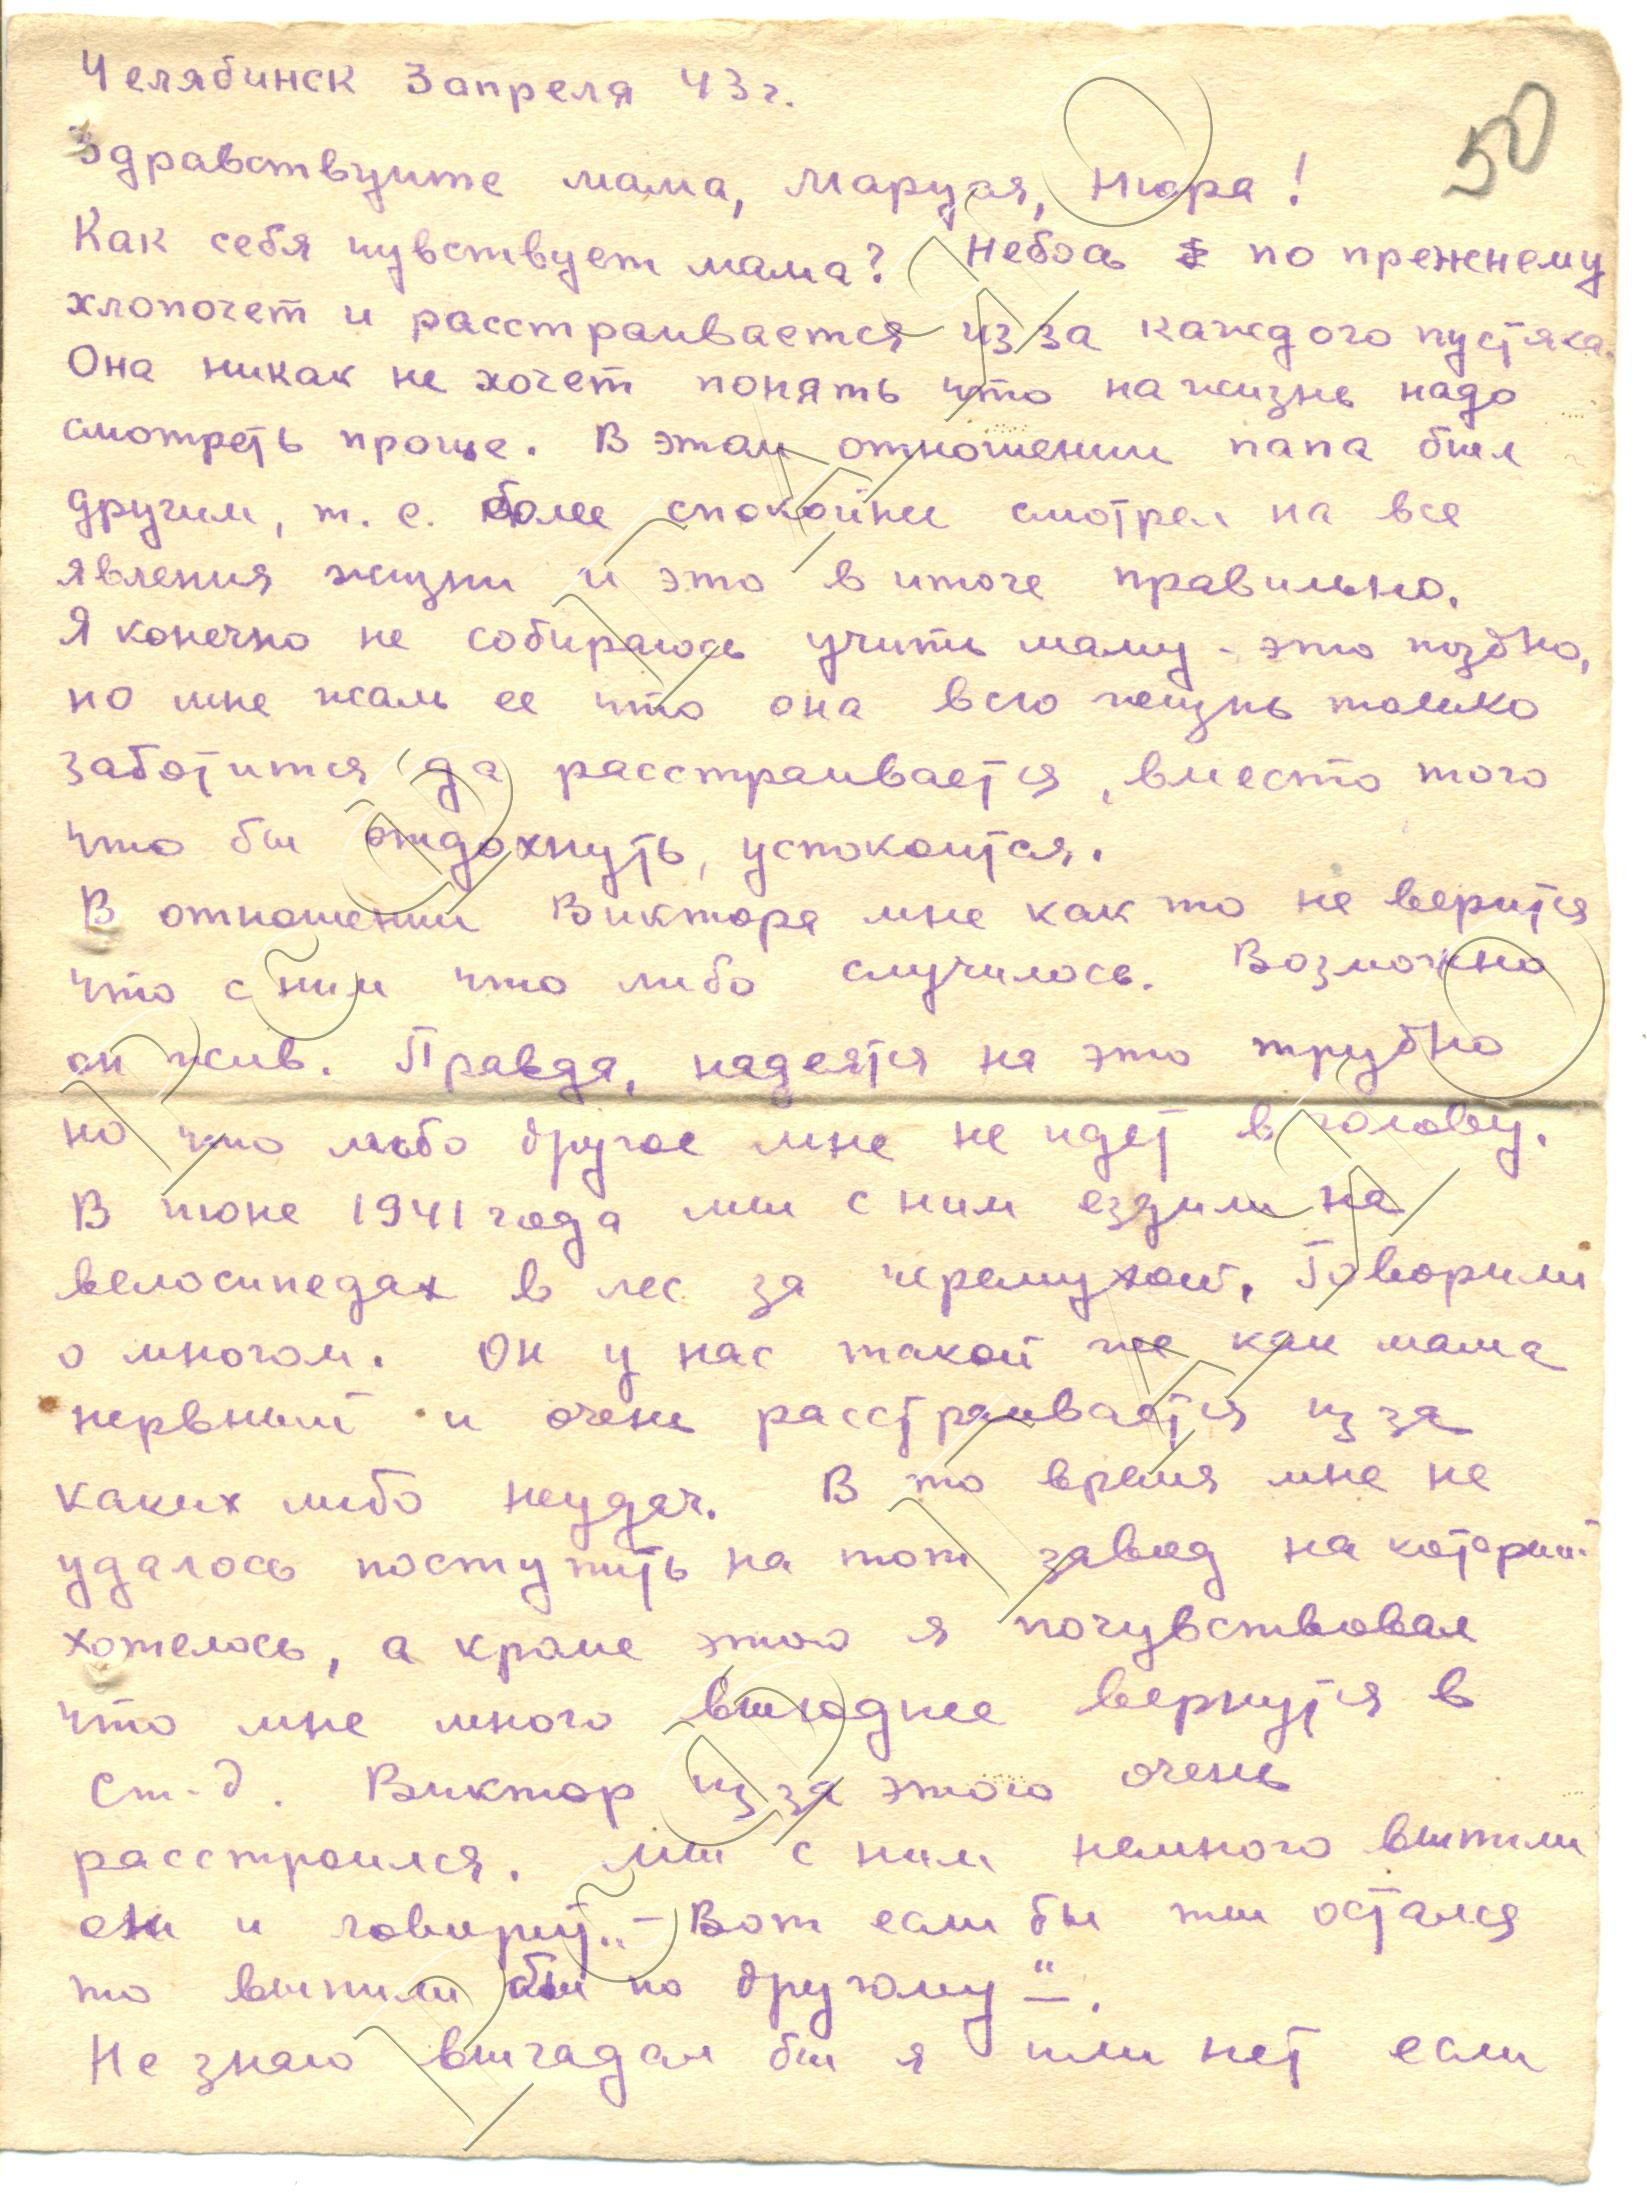 50
Челябинск 3 апреля 43 г.
Здравствуите мама, Маруся, Нюра!
Как себя чувствует мама? Небось по прежнему
хлопочет и расстраивается из за каждого пустяка.
Она никак не хочет понять что на жизнь надо
смотреть проще. В этом отношении папа был
другим, т. е. более спокойнее смотрел на все
явления жизни и это в итоге правильно.
Я конечно не собираюсь учить маму - это поздно,
но мне жаль ее что она всю жизнь только
заботится да расстраивается, вместо того
что бы отдохнуть, успокоится.
В отношении Виктора мне как то не верится
что с ним что либо случилось. Возможно
он жив. Правда, надеятся на это трудно
но что либо другое мне не идет в голову.
В июне 1941 года мы с ним ездили на
велосипедах в лес за черемухой. Говорили
о многом. Он у нас такой же как мама
нервный и очень расстраивается из за
каких либо неудач. В то время мне не
удалось поступить на тот завод на который
хотелось, а кроме этого я почувствовал
что мне много выгоднее вернутся в
Ст-д. Виктор из за этого очень
расстроился. Мы с ним немного выпили
он и говорит „— Вот если бы ты остался
то выпили бы по другому —“.
Не знаю выгадал бы я или нет если